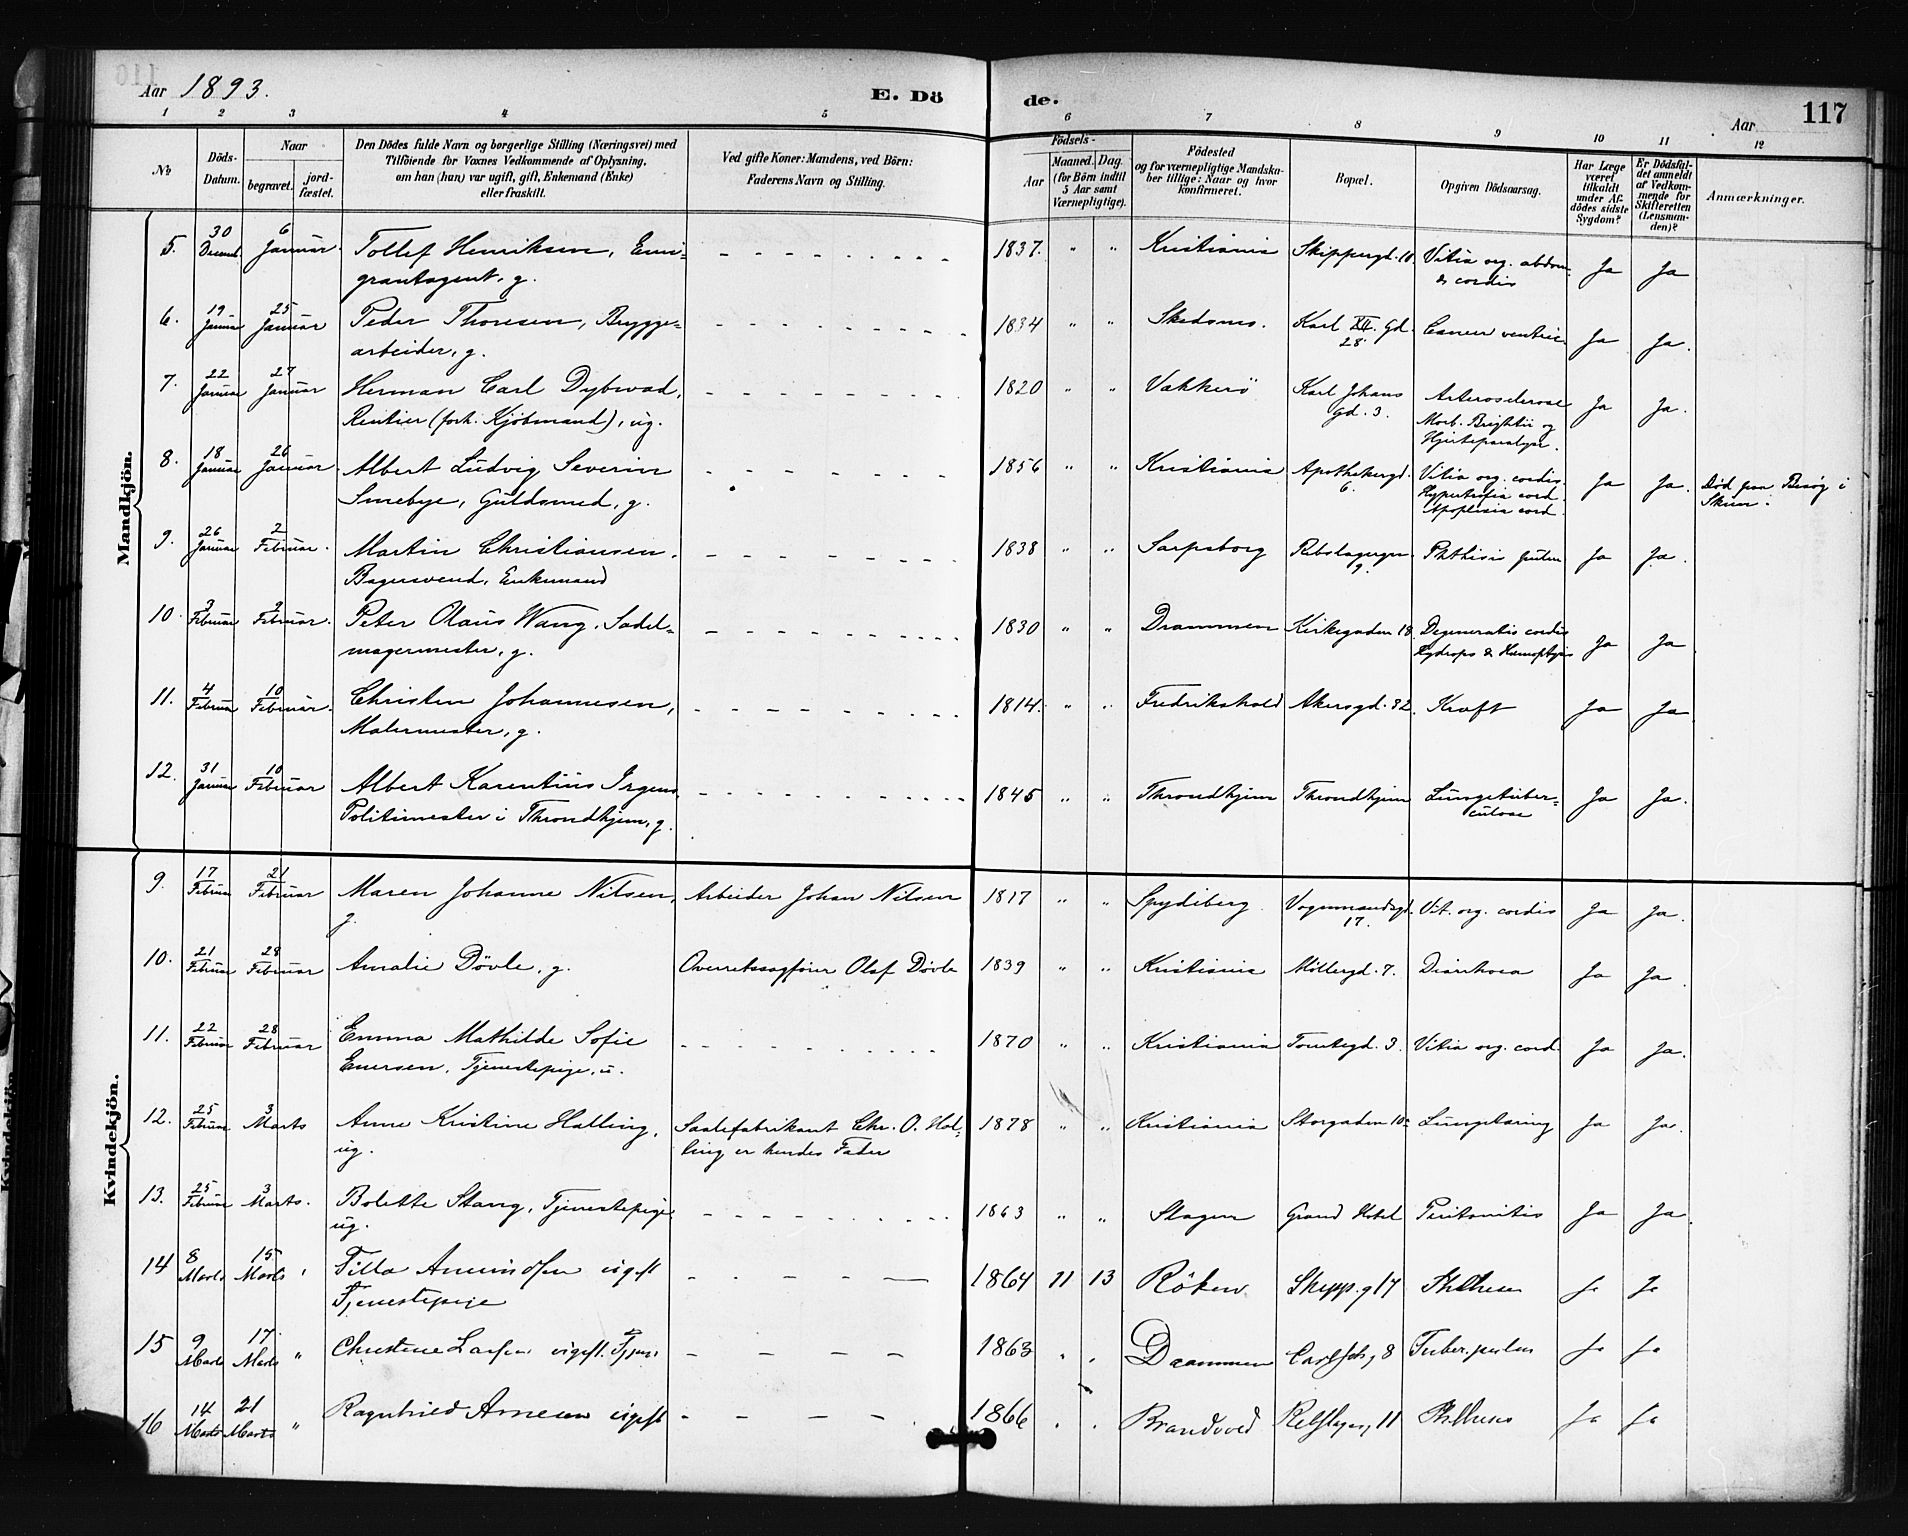 Aar 1893. E. Dö de. Aar 117
1 2 3 4 5 6 7 8 9 10 11 12
No
Döds-Datum.
Naar begravet. jordfæstet.
Den Dödes fulde Navn og borgerlige Stilling (Næringsvei) med
Tilföiende for Voxnes Vedkommende af Oplysning,
om han (hun) var ugift, gift, Enkemand (Enke)
eller fraskilt.
Ved gifte Koner: Mandens, ved Börn:
Faderens Navn og Stilling.
Födsels-
Aar Maaned. Dag.
(for Börn indtil
5 Aar samt
Værnepligtige).
Födested
og for værnepligtige Mandska-
ber tillige: Naar og hvor
konfirmeret.
Bopæl.
Opgiven Dödsaarsag.
Har Læge
været
tilkaldt
under Af-
dödes sidste
Sygdom?
Er Dödsfal-
det anmeldt
af Vedkom-
mende for
Skifteretten
(Lensman-
den)?
Anmærkninger.
Mandkjön.
5. 30 Decemb. 6 Januar. Tollef Henriksen, Emi- 1837. " " Kristiania Skippergd. 10. Vitia org. abdom. Ja Ja
grantagent, g. & cordis
6. 19 Januar 25 Januar Peder Thoresen, Brygge- 1834 " " Skedsmo. Karl XII. Gd. Cancer ventric. Ja Ja.
arbeider, g. 28.
7. 22 Januar 27 Januar Herman Carl Dybwad, 1820 " " Vækkerö Karl Johans Arterosclerose Ja Ja.
Rentier (forh. Kjöbmand), ug. Gd. 3. Morb. Brightii og
Hjerteparalyse.
8. 18 Januar 26 Januar. Albert Ludvig Severin 1856 " " Kristiania Apothekergd. Vitia org. cordis. Ja Ja. Död paa Besög i
Smebye, Guldsmed, g. 6. Hypertrofia cord. Skien.
Apoplexia cord.
9. 26 Januar 2 Februar. Martin Christiansen. 1838 " " Sarpsborg Rebslagergn. Phthisis pulm Ja Ja.
Bagersvend, Enkemand 9.
10. 3 Februar Februar. Peter Olaus Wang. Sadel- 1830 " " Drammen Kirkegaden 18. Degeneratio cordis Ja Ja
magermester, g. Hydrops & Hæmoptysis
11. 4 Februar 10 Februar. Christen Johannesen, 1814. " " Fredrikshald Akersgd. 32. Kræft Ja Ja
Malermester, g.
12. 31 Januar 10 Februar Albert Karentius Irgens. 1845 " " Throndhjem Throndhjem Lungetuber- Ja Ja.
Politimester i Throndhjem, g. culose
Kvindekjön.
9. 17 Februar 21 Februar Maren Johanne Nilsen, Arbeider Johan Nilsen 1817 " " Spydeberg Vognmandsgd. Vit. org. cordis Ja Ja.
g. 17.
10. 21 Februar 28 Februar Amalie Dövle, g. Overretssagförer Olaf Dövle 1839 " " Kristiania Möllergd. 7. Diarrhoea Ja Ja.
11. 22 Februar 28 Februar Emma Mathilde Sofie 1870 " " Kristiania Tomtegd. 3. Vitia org. cord. Ja Ja.
Enersen, Tjenestepige, u.
12. 25 Februar 3 Marts Anne Kristine Halling, Saalefabrikant Chr. O. Hal- 1878 " " Kristiania Storgaden 10 Lungetæring Ja Ja.
ug. ling er hendes Fader
13. 25 Februar 3 Marts. Bolette Stang, Tjenestepige 1863 " " Skagen Grand Hotel Peritonitis Ja Ja.
ug.
14 8 Marts 15 Marts " Tilla Amundsen ugift 1864 11 13 Röken Skipp.g 17 Phthisis Ja Ja
Tjenestepige
15 9 Marts 17 Marts " Christine Larsen ugift. Tjenes 1863 " " Drammen Carl Joh, 8 Tuber. pulm Ja Ja
16 14 Marts 21 Marts " Ragnhild Arnesen ugift 1866 " " Brandvold Rebslager, 11 Phthisis Ja Ja